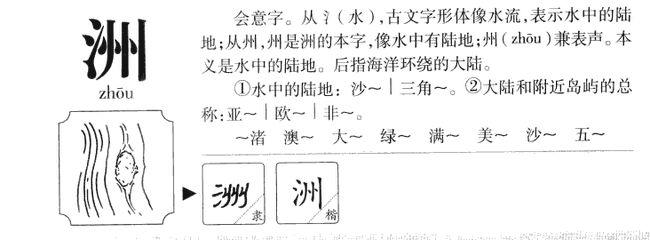 洲
zhōu
会意字。从氵(水),古文字形体像水流,表示水中的陆
地;从州,州是洲的本字,像水中有陆地;州(zhōu)兼表声。本
义是水中的陆地。后指海洋环绕的大陆。
①水中的陆地:沙～|三角～。②大陆和附近岛屿的总
称:亚～|欧～|非～。
～渚 澳～ 大～ 绿～ 满～ 美～ 沙～ 五～
洲 隶
洲 楷